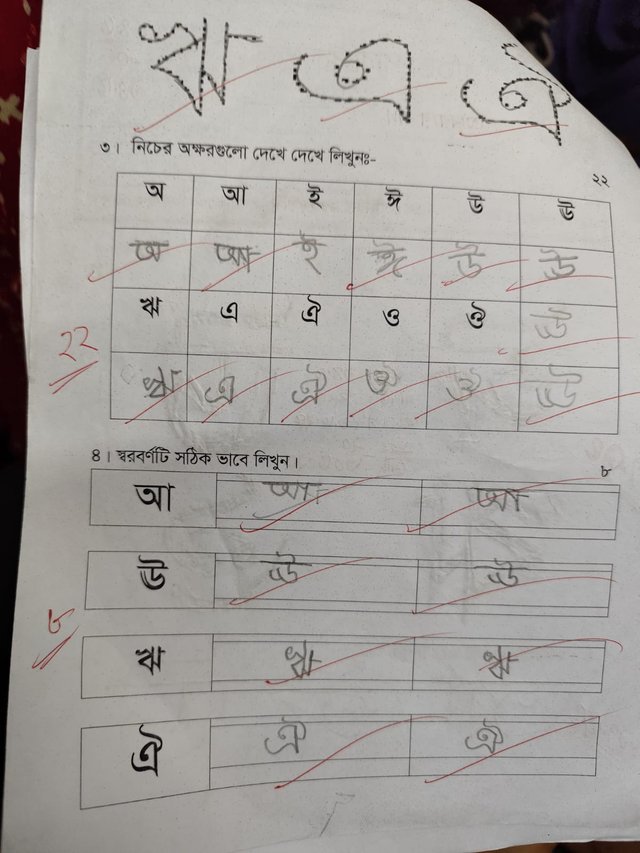 ঋ এ ঐ
৩। নিচের অক্ষরগুলো দেখে দেখে লিখুনঃ-
২২
অ আ ই ঈ উ ঊ
অ আ ই ঈ উ ঊ
ঋ এ ঐ ও ঔ ঊ
২২
ঋ এ ঐ ও ঔ ঊ
৪। স্বরবর্ণটি সঠিক ভাবে লিখুন।
৮
আ আ আ
ঊ ঊ ঊ
৮
ঋ ঋ ঋ
ঐ ঐ ঐ